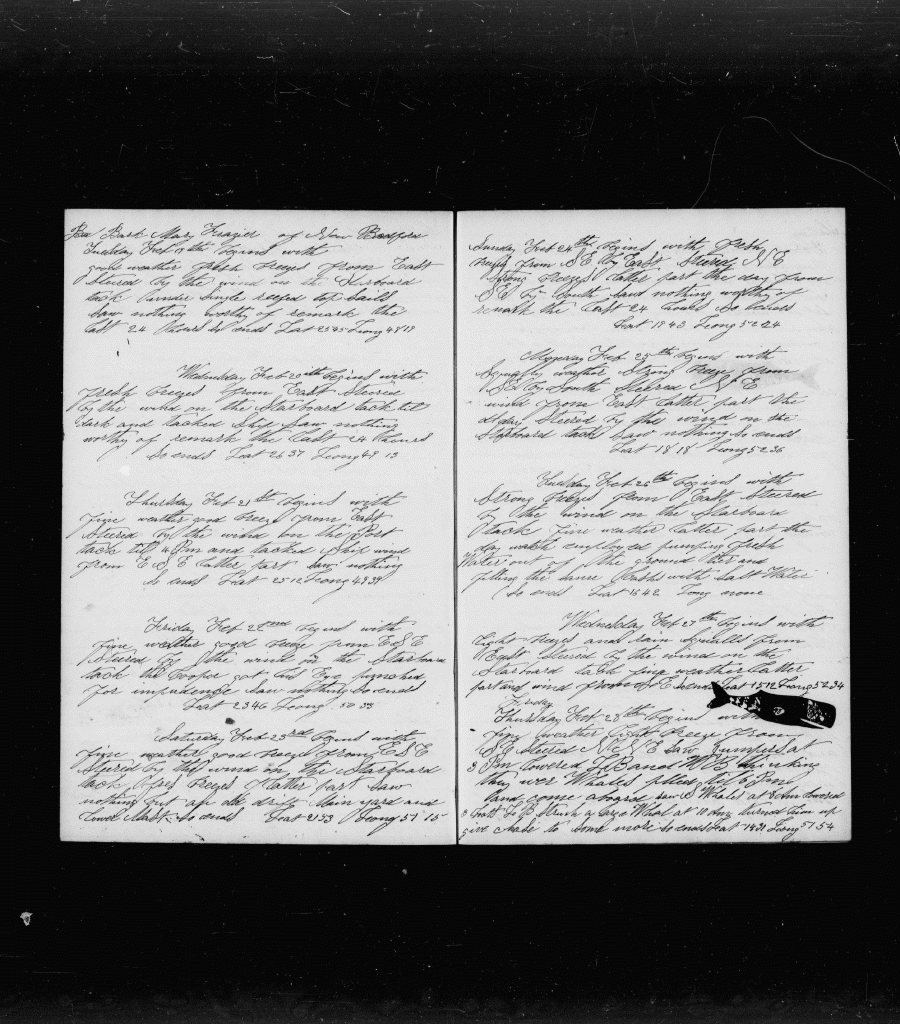 Bark Mary Frazier of New Bedford
Tuesday Feb 19th begins with
good weather fresh breezes from East
Steered by the wind on the Starboard
tack under single reefed top sails
Saw nothing worthy of remark the
last 24 hours so ends Lat 25 45 Long 48 19
Wednesday Feb 20th begins with
fresh breezes from East Steered
by the wind on the Starboard tack till
dark and tacked Ship saw nothing
worthy of remark the last 24 hours
So ends Lat 26 37 Long 49 13
Thursday Feb 21st begins with
fine weather good breeze from East
Steered by the wind on the Port
tack till 4 Pm and tacked Ship wind
from E S E latter part saw nothing
So ends Lat 25 12 Long 49 39
Friday Feb 22nd begins with
fine weather good breeze from E S E
Steered by the wind on the Starboard
tack the Cooper got his Eye punched
for impudence saw nothing so ends
Lat 23 46 Long 50 33
Saturday Feb 23rd begins with
fine weather good breeze from E S E
Steered by the wind on the Starboard
tack fresh breezes latter part saw
nothing but an old drift Main yard and
lower Mast so ends Lat 21 53 Long 51 15
Sunday Feb 24th begins with fresh
breezes from S E by East Steered N E
Strong breezes latter part the day from
S E by South saw nothing worthy of
remark the last 24 hours So ends
Lat 19 43 Long 52 24
Monday Feb 25th begins with
Squally weather Strong breeze from
S E by South Steered N E
wind from East latter part the
day Steered by the wind on the
Starboard tack saw nothing so ends
Lat 18 18 Long 52 36
Tuesday Feb 26th begins with
Strong breezes from East Steered
by the wind on the Starboard
tack fine weather latter part the
day watch employed pumping fresh
Water out of the ground tier and
filling the same Casks with Salt Water
So ends Lat 16 42 Long none
Wednesday Feb 27th begins with
light breezes and rain squalls from
East Steered by the wind on the
Starboard tack fine weather latter
part and wind from S E so ends Lat 15 12 Long 52 34
Friday
Thursday Feb 28th begins with
fine weather light breeze from
S E Steered N N E saw Jumpers at
3 Pm lowered L B and W B thinking
they wer Whales pulled till 6 Pm
and come aboard saw S Whales at 8 Am lowered
3 boats L B Struck a large Whale at 10 Am turned him up
give chase to some more So ends Lat 14 31 Long 51 54